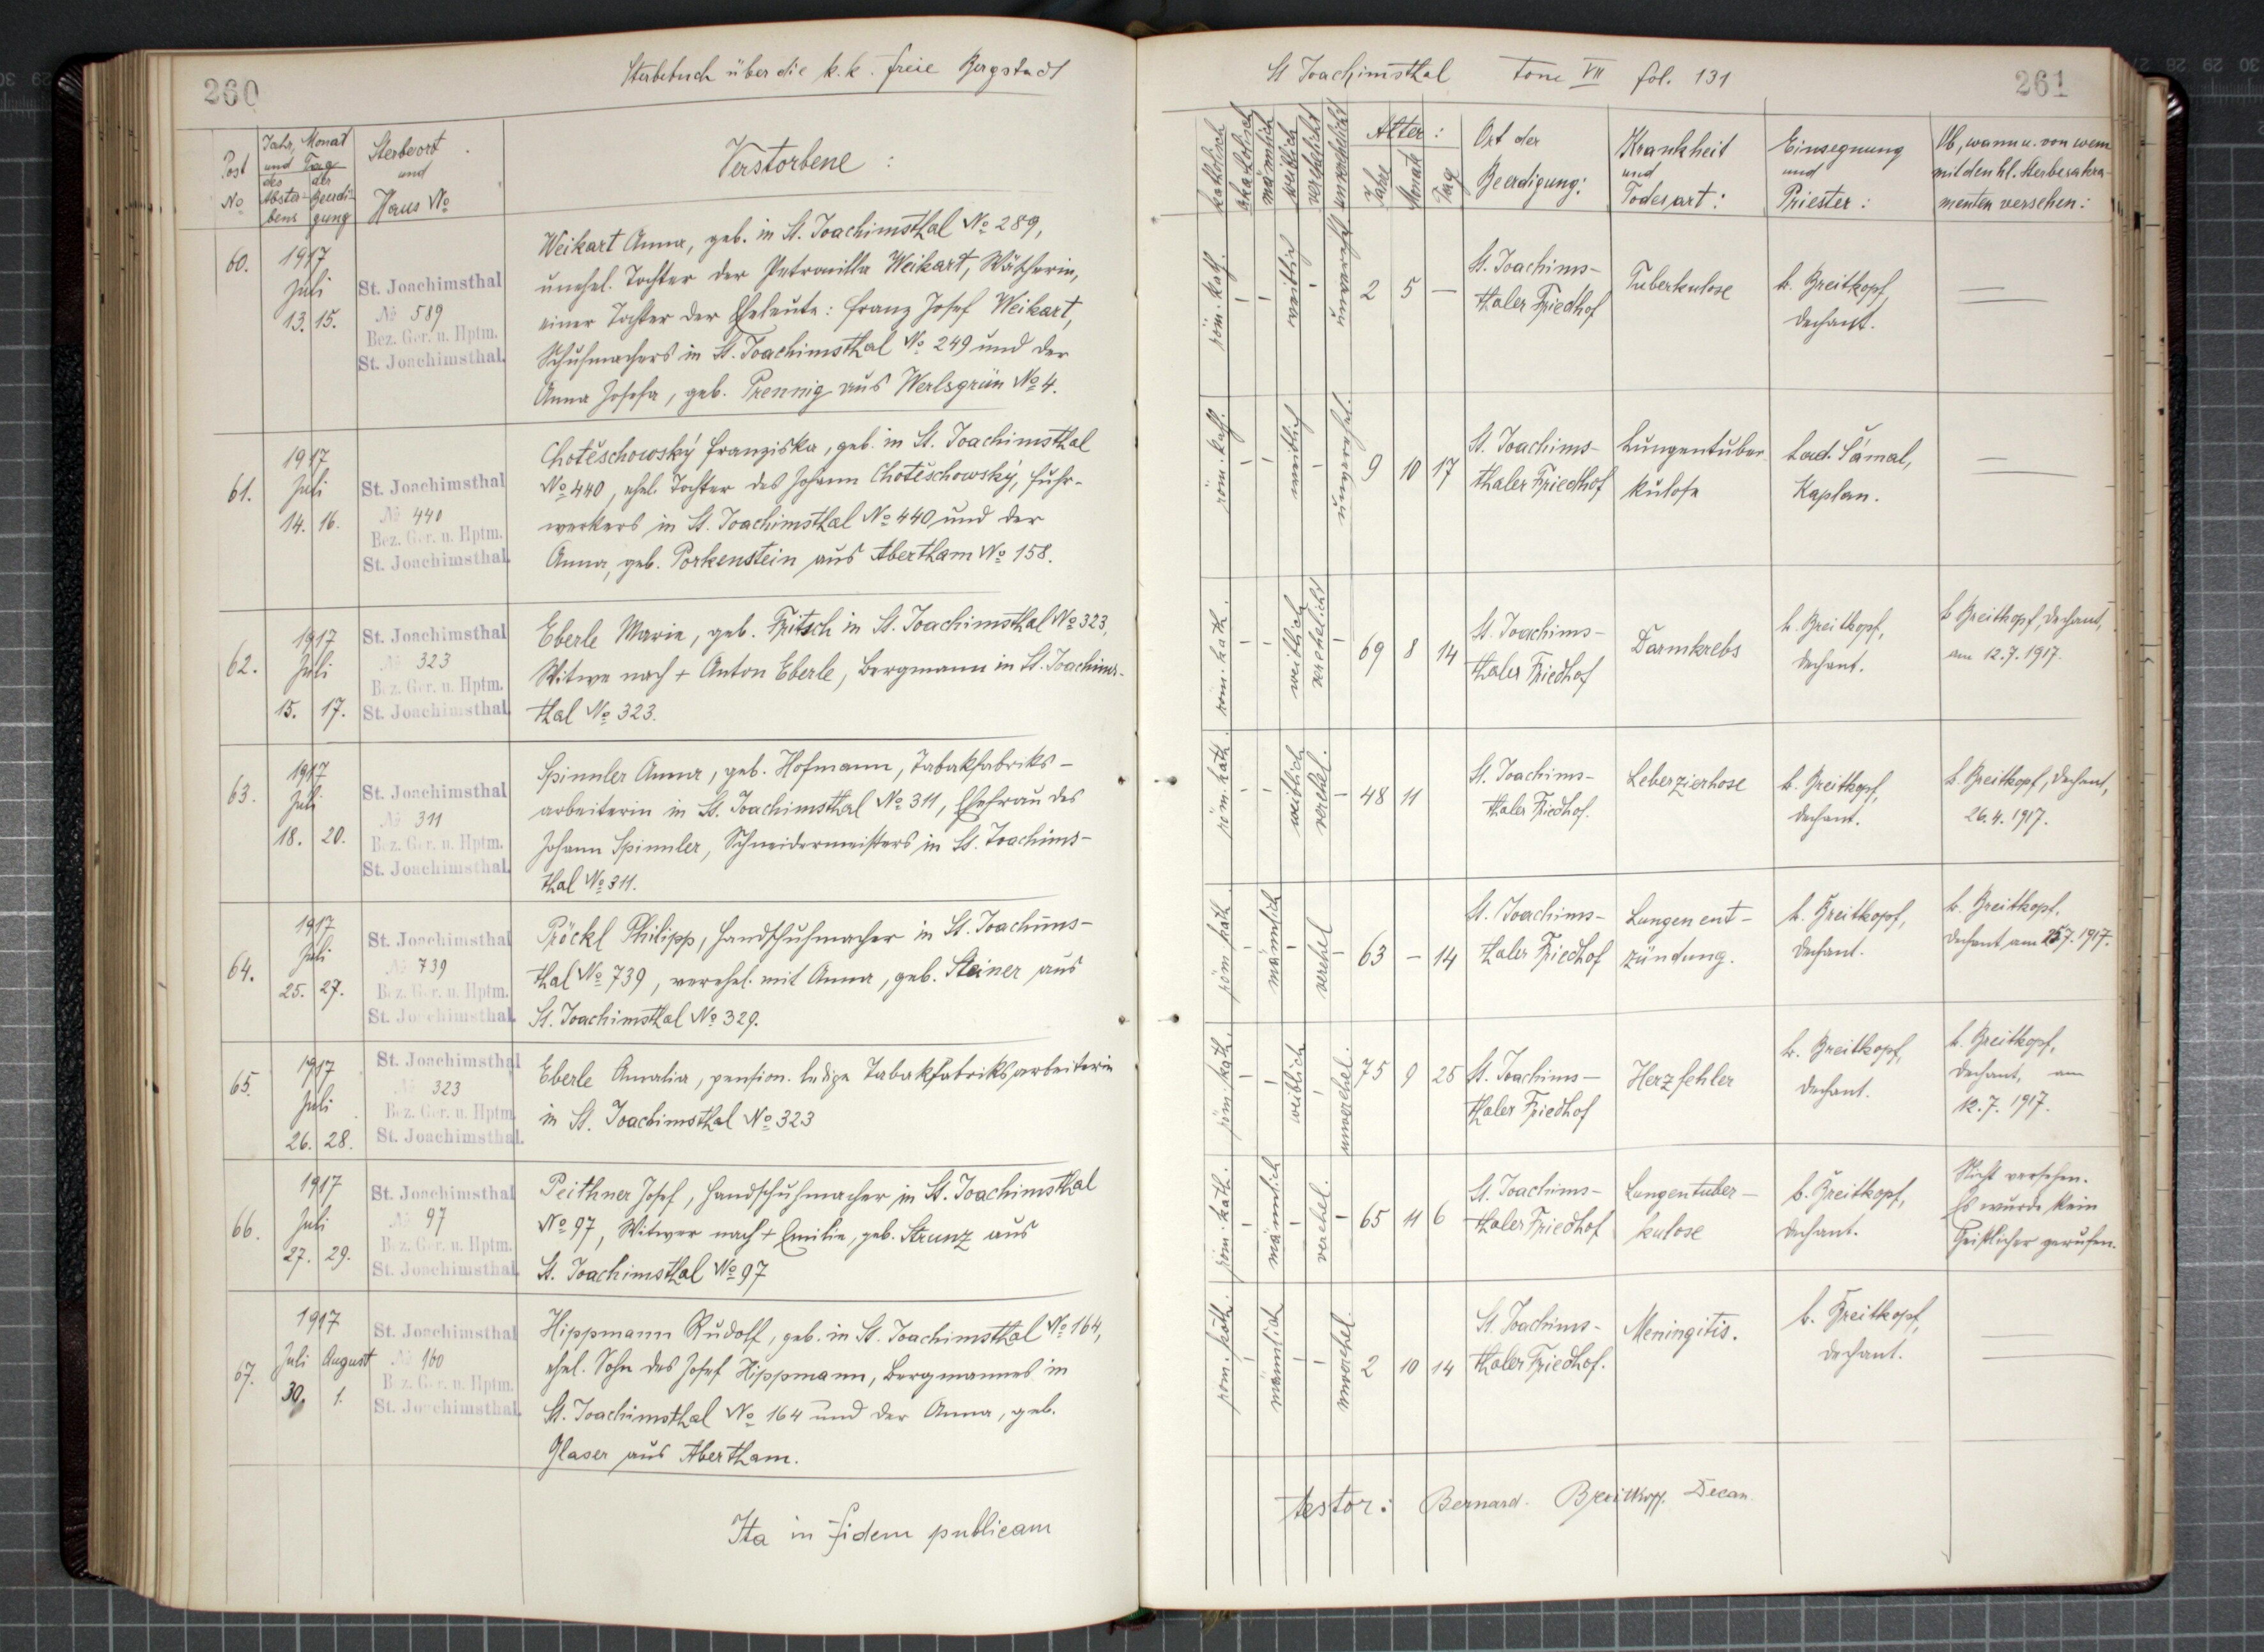 260
Sterbebuch über die k.k. freie Bergstadt
Post No
Jahr, Monat und Tag
des Absterbens
der Beerdigung
Sterbeort und Haus No
Verstorbene:
60.
1917
Juli
13. 15.
St. Joachimsthal
No 589
Bez. Ger. u. Hptm.
St. Joachimsthal.
Weikart Anna, geb. in St. Joachimsthal No 289,
unehel. Tochter der Petronilla Weikart, Wäscherin,
einer Tochter der Eheleute: Franz Josef Weikart,
Schuhmachers in St. Joachimsthal No 249 und der
Anna Josefa, geb. Prennig aus Werlsgrün No 4.
61.
1917
Juli
14. 16.
St. Joachimsthal
No 440
Bez. Ger. u. Hptm.
St. Joachimsthal.
Chotěschowský Franziska, geb. in St. Joachimsthal
No 440, ehel. Tochter des Johann Chotěschowský, Fuhr-
werkers in St. Joachimsthal No 440 und der
Anna, geb. Porkenstein aus Abertham No 158.
62.
1917
Juli
15. 17.
St. Joachimsthal
No 323
Bez. Ger. u. Hptm.
St. Joachimsthal.
Eberle Marie, geb. Fritsch in St. Joachimsthal No 323,
Witwe nach + Anton Eberle, Bergmann in St. Joachims-
thal No 323.
63.
1917
Juli
18. 20.
St. Joachimsthal
No 311
Bez. Ger. u. Hptm.
St. Joachimsthal.
Spinnler Anna, geb. Hofmann, Tabakfabriks-
arbeiterin in St. Joachimsthal No 311, Ehefrau des
Johann Spinnler, Schneidermeisters in St. Joachims-
thal No 311.
64.
1917
Juli
25. 27.
St. Joachimsthal
No 739
Bez. Ger. u. Hptm.
St. Joachimsthal.
Pröckl Philipp, Handschuhmacher in St. Joachims-
thal No 739, verehel. mit Anna, geb. Steiner aus
St. Joachimsthal No 329.
65.
1917
Juli
26. 28.
St. Joachimsthal
No 323
Bez. Ger. u. Hptm.
St. Joachimsthal.
Eberle Amalia, pension. ledige Tabakfabriksarbeiterin
in St. Joachimsthal No 323
66.
1917
Juli
27. 29.
St. Joachimsthal
No 97
Bez. Ger. u. Hptm.
St. Joachimsthal.
Peithner Josef, Handschuhmacher in St. Joachimsthal
No 97, Witwer nach + Emilie, geb. Strunz aus
St. Joachimsthal No 97
67.
1917
Juli August
30. 1.
St. Joachimsthal
No 160
Bez. Ger. u. Hptm.
St. Joachimsthal.
Hippmann Rudolf, geb. in St. Joachimsthal No 164,
ehel. Sohn des Josef Hippmann, Bergmannes in
St. Joachimsthal No 164 und der Anna, geb.
Glaser aus Abertham.
Ita in fidem publicam
St Joachimsthal tom VII fol. 131
261
katholisch
akatholisch
männlich
weiblich
verehelicht
unverehelicht
Alter:
Jahre
Monate
Tag
Ort der
Beerdigung:
Krankheit
und
Todesart:
Einsegnung
und
Priester:
Ob, wann u. von wem
mit den hl. Sterbesakra-
menten versehen:
röm. kath. - - weiblich - unverehel. 2 5 —
St. Joachims-
thaler Friedhof
Tuberkulose
b. Breitkopf,
Dechant.
—
röm. kath. - - weiblich - unverehel. 9 10 17
St. Joachims-
thaler Friedhof
Lungentuber
kulose
Lad. Šámal,
Kaplan.
—
röm. kath. - - weiblich verehelicht - 69 8 14
St. Joachims-
thaler Friedhof
Darmkrebs
b. Breitkopf,
Dechant.
b Breitkopf, Dechant,
am 12.7.1917.
röm. kath. - - weiblich verehel. - 48 11
St. Joachims-
thaler Friedhof.
Leberzierhose
b. Breitkopf,
Dechant.
b. Breitkopf, Dechant,
26.4.1917.
röm. kath. - männlich - verehel - 63 - 14
St. Joachims-
thaler Friedhof
Lungenent-
zündung.
b. Breitkopf,
Dechant.
b. Breitkopf,
Dechant am 25.7.1917.
röm. kath. - - weiblich - unverehel. 75 9 25
St. Joachims-
thaler Friedhof
Herzfehler
b. Breitkopf,
Dechant.
b. Breitkopf,
Dechant, am
12.7.1917.
röm. kath. - männlich - verehel. - 65 11 6
St. Joachims-
thaler Friedhof
Lungentuber-
kulose
b. Breitkopf,
Dechant.
Nicht versehen.
Es wurde kein
Geistlicher gerufen.
röm. kath. - männlich - - unverehel. 2 10 14
St. Joachims-
thaler Friedhof.
Meningitis.
b. Breitkopf,
Dechant.
—
testor: Bernard Breitkopf. Decan.